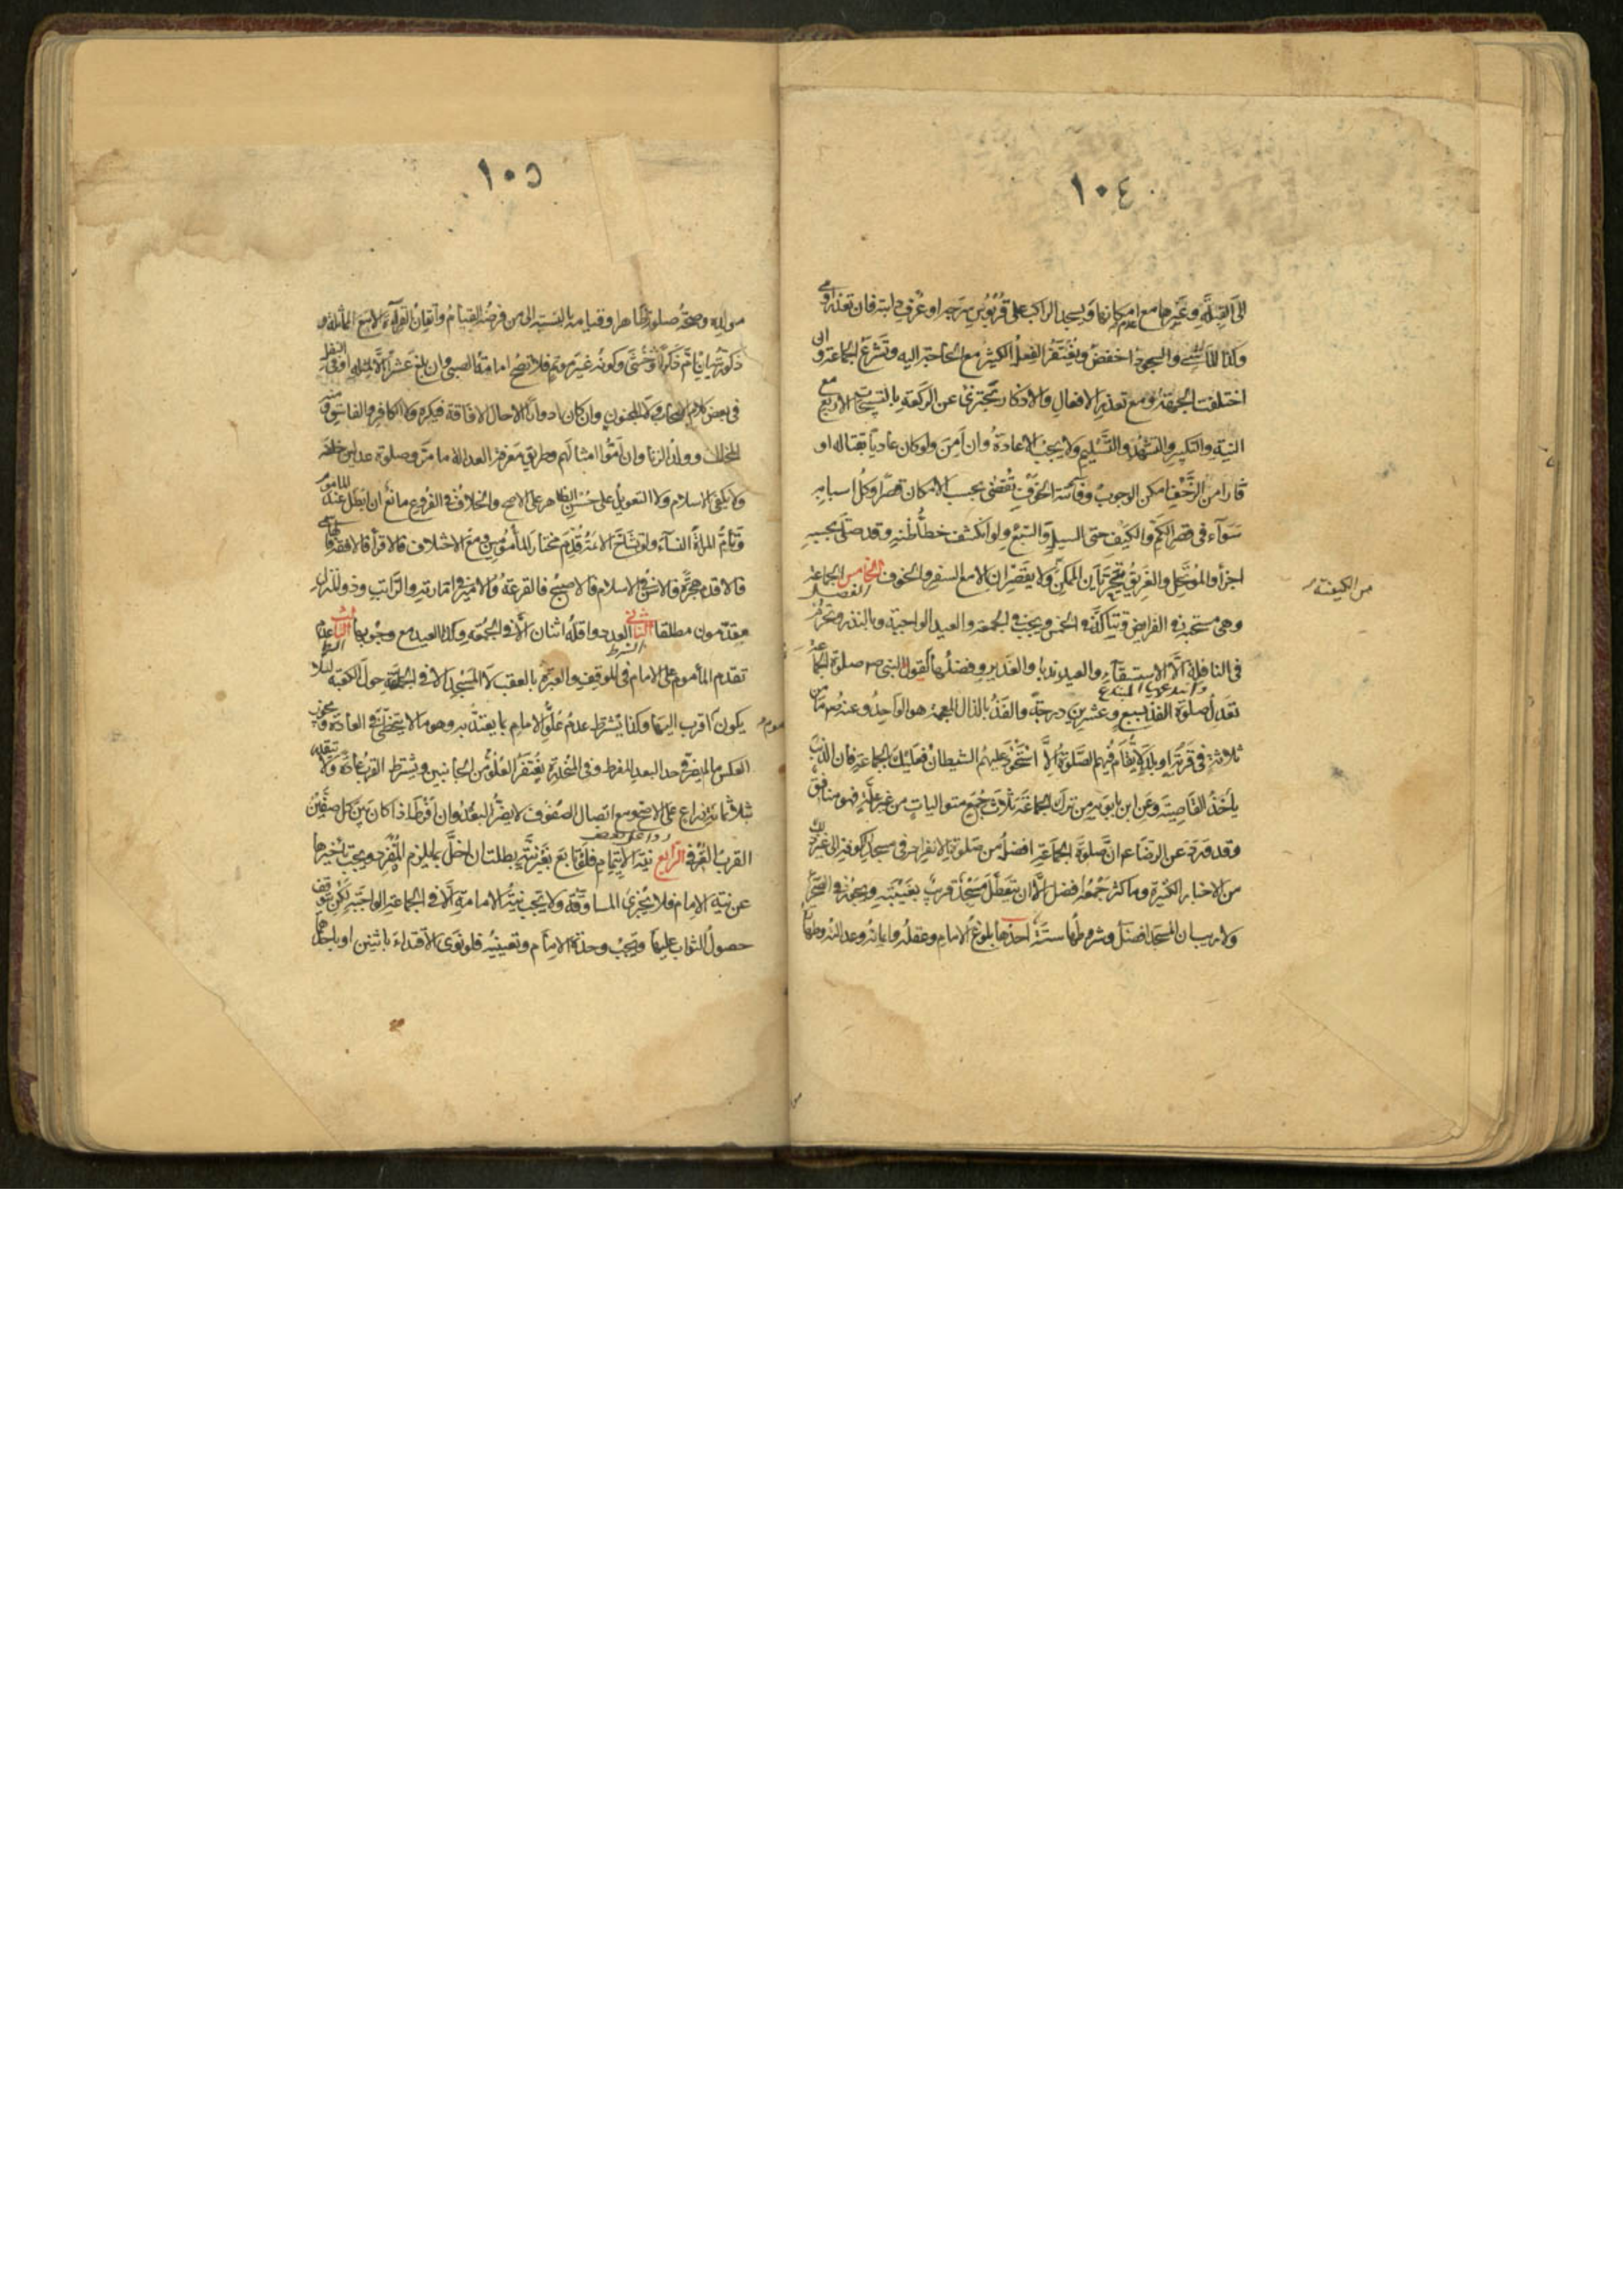 ١٠٤
الى القبلة وفي غيرها مع عدم امكانها ويسجد الراكب على قربوس سرجه او عرف دابته فان تعذر اومى
وكذا الماشي والسجود اخفض ويغتفر الفعل الكثير مع الحاجة اليه وتشرع الجماعة والى
اختلفت الجهة ومع تعذر الافعال والاذكار يجتزئ عن الركعة بالتسبيحات الاربع مع
النية والتكبير والتشهد والتسليم ولا يجب الاعادة وان امن ولو كان عاديا بقتاله او
فارا من الزحف امكن الوجوب وفائتة الخوف تقضى بحسب الامكان قصرا وكل اسبابه
سواء في قصر الكم والكيف حتى السيل والسبع ولو انكشف خطأ ظنه وقد صلى بحسبه
اجزأ والموتحل والغريق يتحريان الممكن من الكيفية ولا يقصران الا مع السفر والخوف الفصل الخامس الجماعة
وهي مستحبة في الفرايض وتتأكد في الخمس ويجب في الجمعة والعيد الواجبة وبالنذر وتحرم
في النافلة الا الاستسقاء والعيد ندبا والغدير وفضلها لقول النبي ص صلوة الجماعة
تعدل صلوة الفذ بسبع وعشرين درجة والفذ بالذال المعجمة هو الواحد وعنه ص ما من
ثلاثة في قرية او بلد لا يقام فيهم الصلوة الا استحوذ عليهم الشيطان فعليك بالجماعة فان الذئب
يأخذ القاصية وعن ابن بابويه من ترك الجماعة ثلاث جمع متواليات من غير علة فهو منافق
وقد ورد عن الرضا ع ان صلوة الجماعة افضل من صلوة الانفراد في مسجد الكوفة الى غير ذلك
من الاخبار الكثيرة وما كثر جمعه افضل الا ان يتعطل مسجد قريب بغيبته ويجوز في الصحراء
ولا ريب ان المسجد افضل وشروطها ستة احدها بلوغ الامام وعقله وايمانه وعدالته وطهارة
١٠٥
مولده وصحة صلوته ظاهرا وقيامه بالنسبة الى من فرضه القيام واتقان القراءة الا مع المماثلة و
ذكورته ان ام ذكرا او خنثى وكونه غير مؤتم فلا تصح امامة الصبي وان بلغ عشرا الا لمثله او في النفل
في بعض كلام الاصحاب ولا المجنون وان كان ادوارا الا حال الافاقة فيكره ولا الكافر والفاسق و
المخالف وولد الزنا وان اموا امثالهم وطريق معرفة العدالة ما مر وصلوة عدلين خلفه
ولا يكفي الاسلام ولا التعويل على حسن الظاهر على الاصح والخلاف في الفروع مانع ان ابطل عند المأموم
وتأم المرأة النساء ولو تشاح الائمة قدم مختار المأمومين ومع الاختلاف فالاقرأ فالافقه
فالاقدم هجرة فالاسن في الاسلام فالاصبح فالقرعة والامير في امارته والراتب وذو المنزل
مقدمون مطلقا الشرط الثاني العدد واقله اثنان الا في الجمعة وكذا العيد مع وجوبها الشرط الثالث عدم
تقدم المأموم على الامام في الموقف والعبرة بالعقب لا المسجد الا في الجماعة حول الكعبة لئلا
يكون المأموم اقرب اليها وكذا يشترط عدم علو الامام بما يعتد به وهو ما لا يتخطى في العادة ويجوز
العكس ما لم يصر في حد البعد المفرط وفي المنحدرة يغتفر العلو من الجانبين ويشترط القرب عادة ولا يتقدر
بثلاثمائة ذراع على الاصح ومع اتصال الصفوف لا يضر البعد وان افرط اذا كان بين كل صفين
القرب العرفي الرابع نية الايتمام فلو تابع بغير نية بطلت ان اخل بما يلزم المنفرد ويجب تأخيرها
عن نية الامام فلا يجزئ المساوقة ولا تجب نية الامامة الا في الجماعة الواجبة لكن يتوقف
حصول الثواب عليها ويجب وحدة الامام وتعيينه فلو نوى الاقتداء باثنين او باحدهما